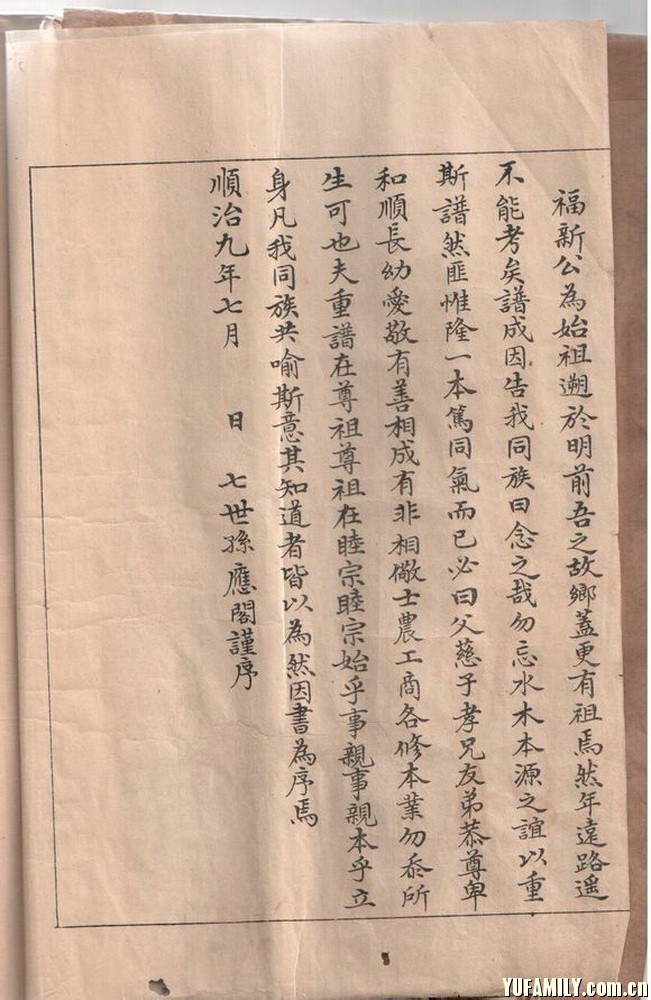 福新公為始祖遡於明前吾之故鄉蓋更有祖焉然年遠路遥
不能考矣譜成因告我同族曰念之哉勿忘水木本源之誼以重
斯譜然匪惟隆一本篤同氣而已必曰父慈子孝兄友弟恭尊卑
和順長幼愛敬有善相成有非相儆士農工商各修本業勿忝所
生可也夫重譜在尊祖尊祖在睦宗睦宗始乎事親事親本乎立
身凡我同族共喻斯意其知道者皆以為然因書為序焉
順治九年七月 日 七世孫應閣謹序
YUFAMILY.com.cn